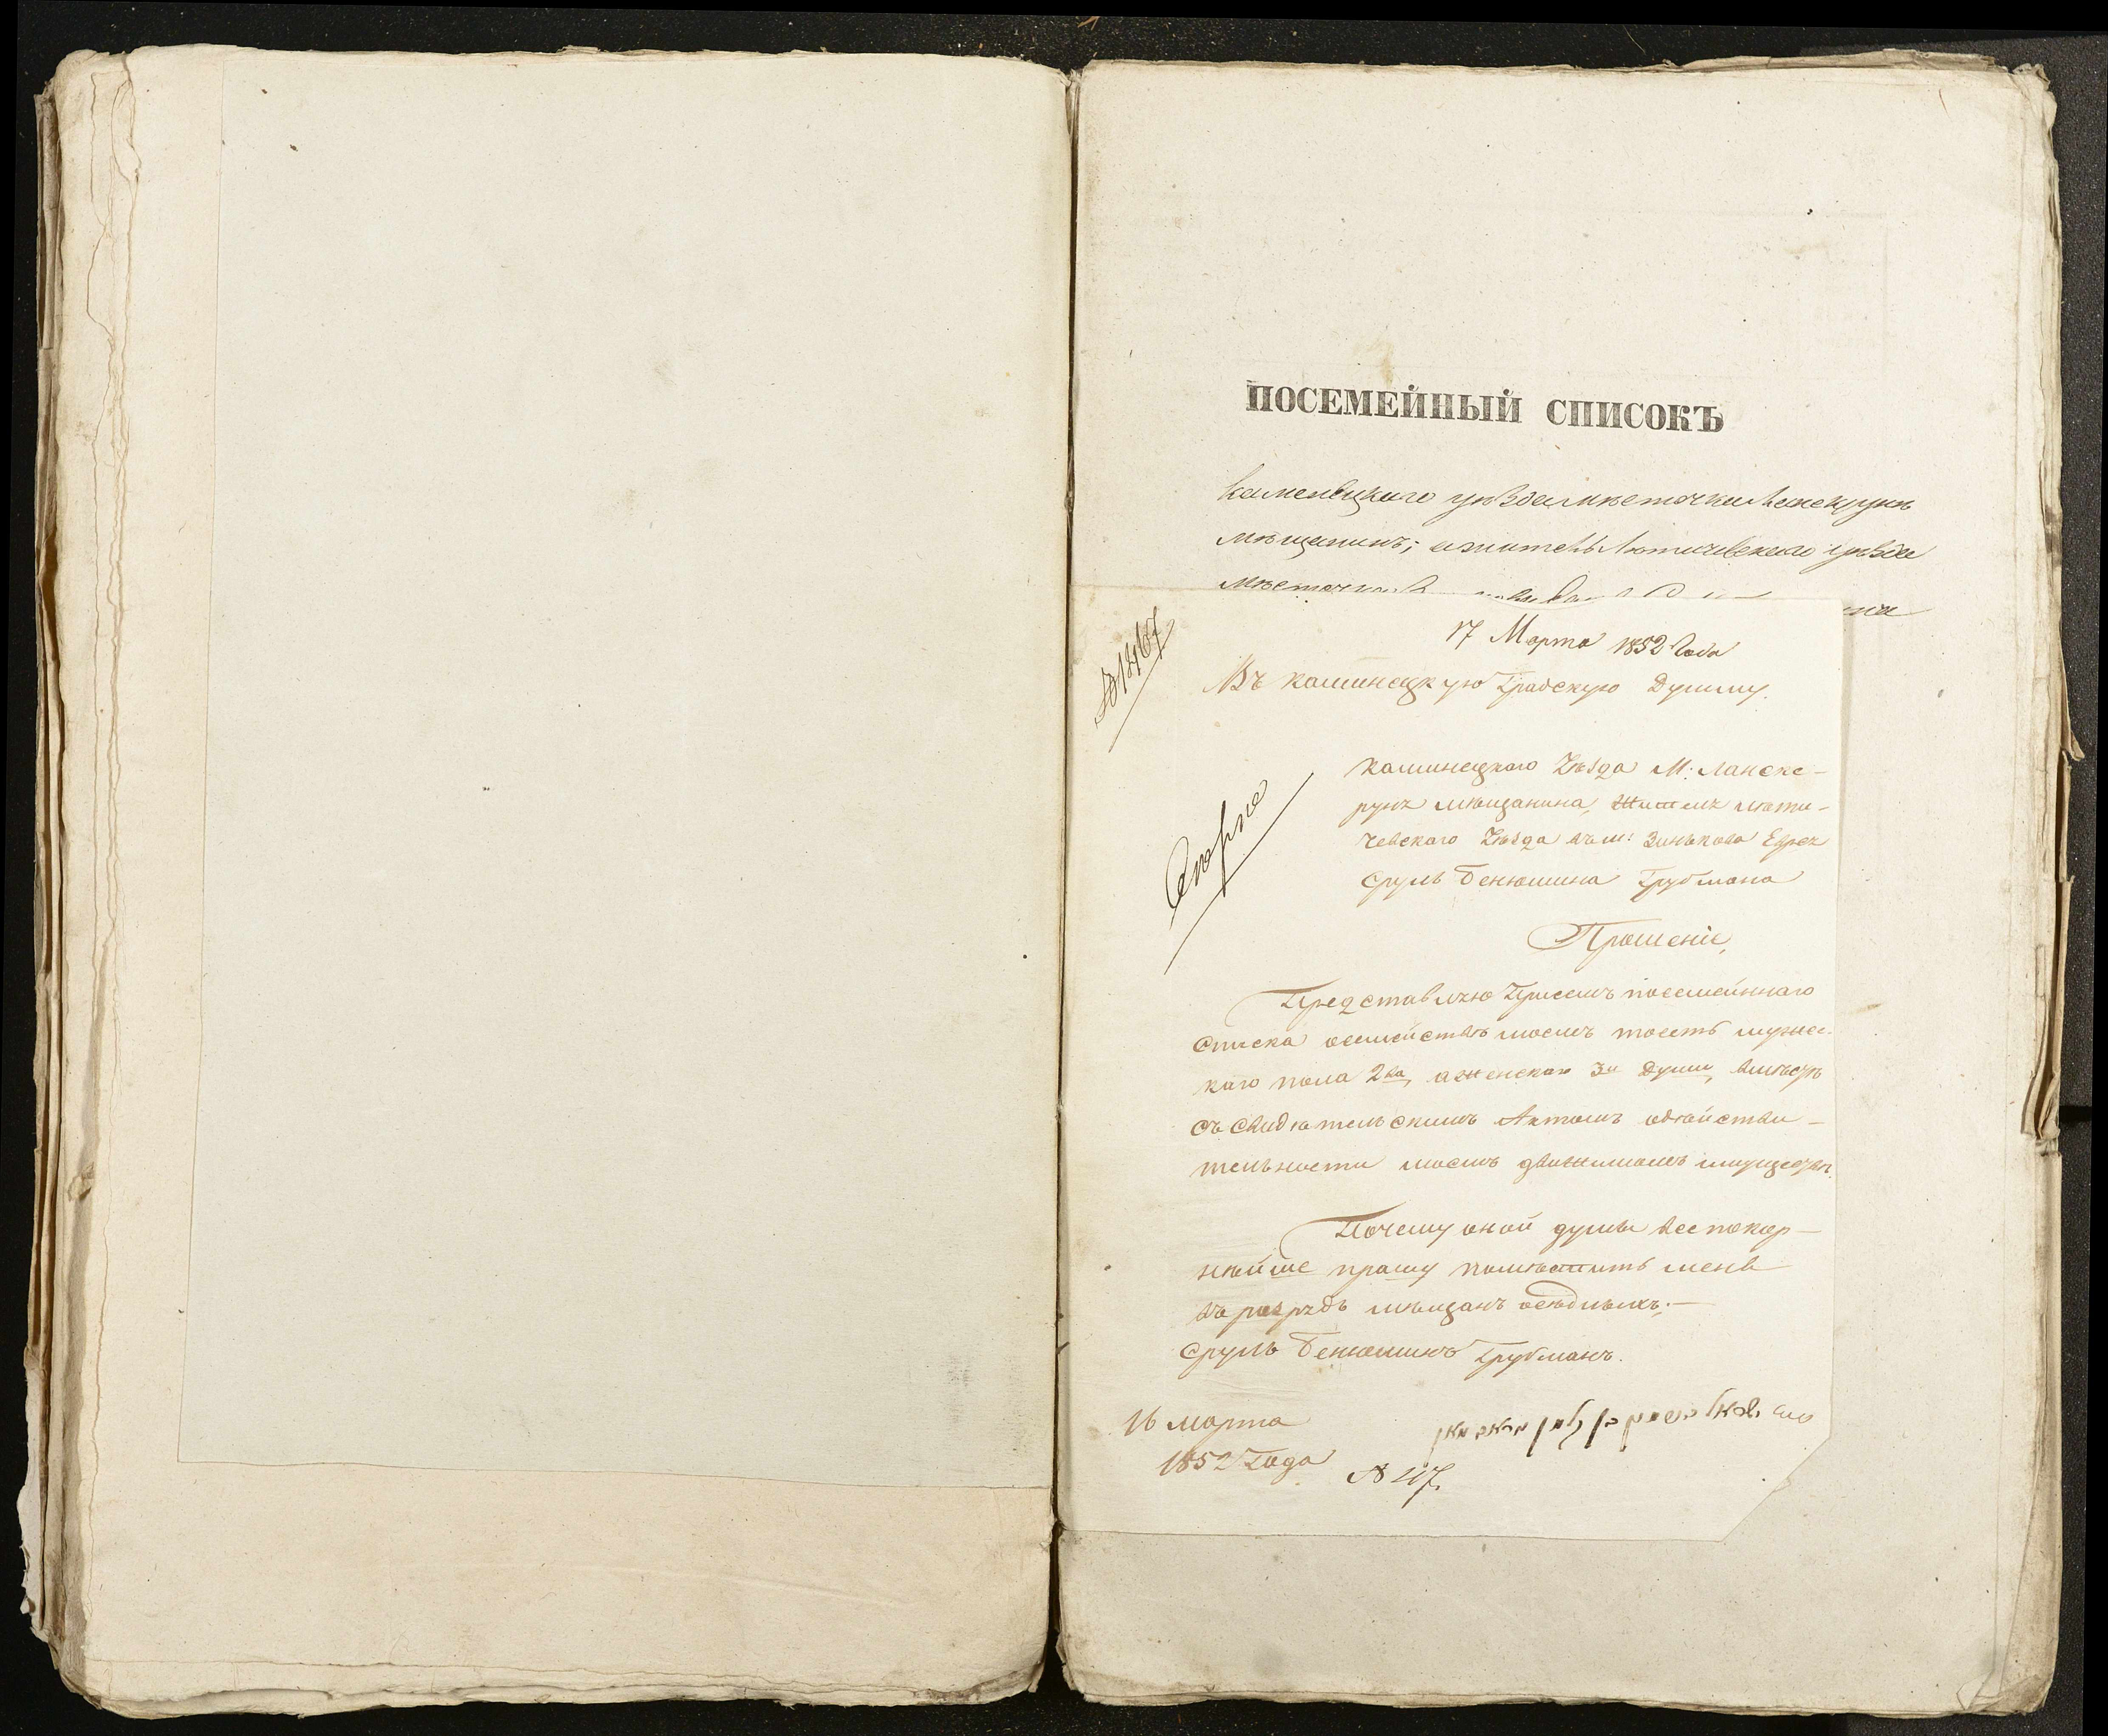 ПОСЕМЕЙНЫЙ СПИСОКЪ
Каменецкаго уѣзда мѣстечка Ланскрунь
мѣщанинъ; а житель Летичевскаго уѣзда
мѣстечка
17 Марта 1852 Года
Въ Каминецкую Градскую Думму.
Каминецкаго Уѣзда М: Ланскс-
рунь мѣщанина, Житель лѣти-
чевскаго Уѣзда въ м: Зинькова Еврея
Сруль Бенюмина Грубмана
Прошеніе,
Представляю Присемъ посемейнаго
Списка осемействѣ моемъ тоесть мужес-
каго пола 2ва, а женскаго 3и Души, вмѣсте
съ Свидѣтельскимъ Актомъ одѣйстви-
тельности моемъ движимомъ имуществѣ.
Почему оной думы всепокор-
нѣйше прашу помѣстить меня
въ разрядъ мѣщанъ осѣдлыхъ.—
Сруль Бенюминъ Грубманъ.
16 марта
1852 Года